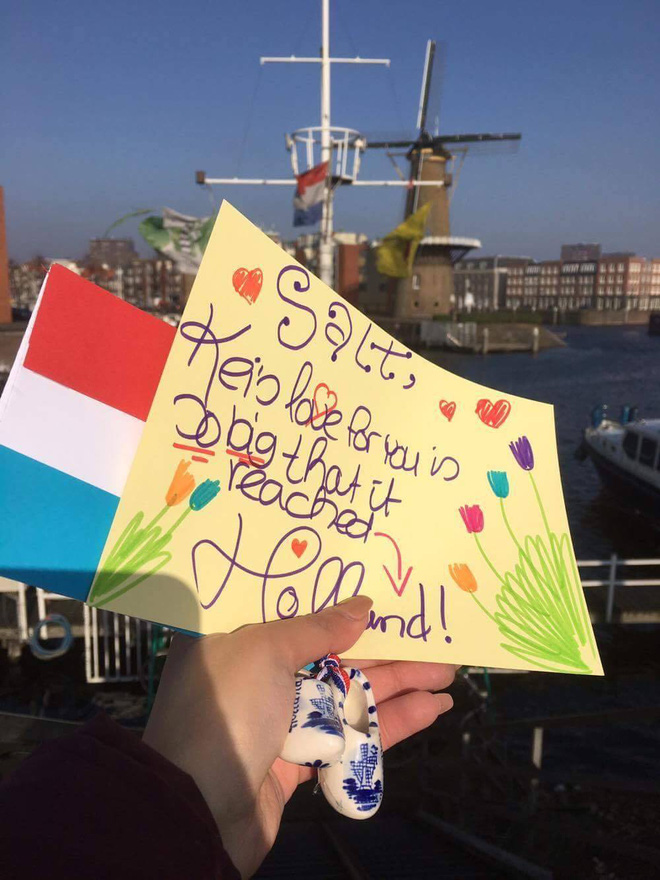 Salt,
Kei's love for you is
so big that it
reached
Holland!